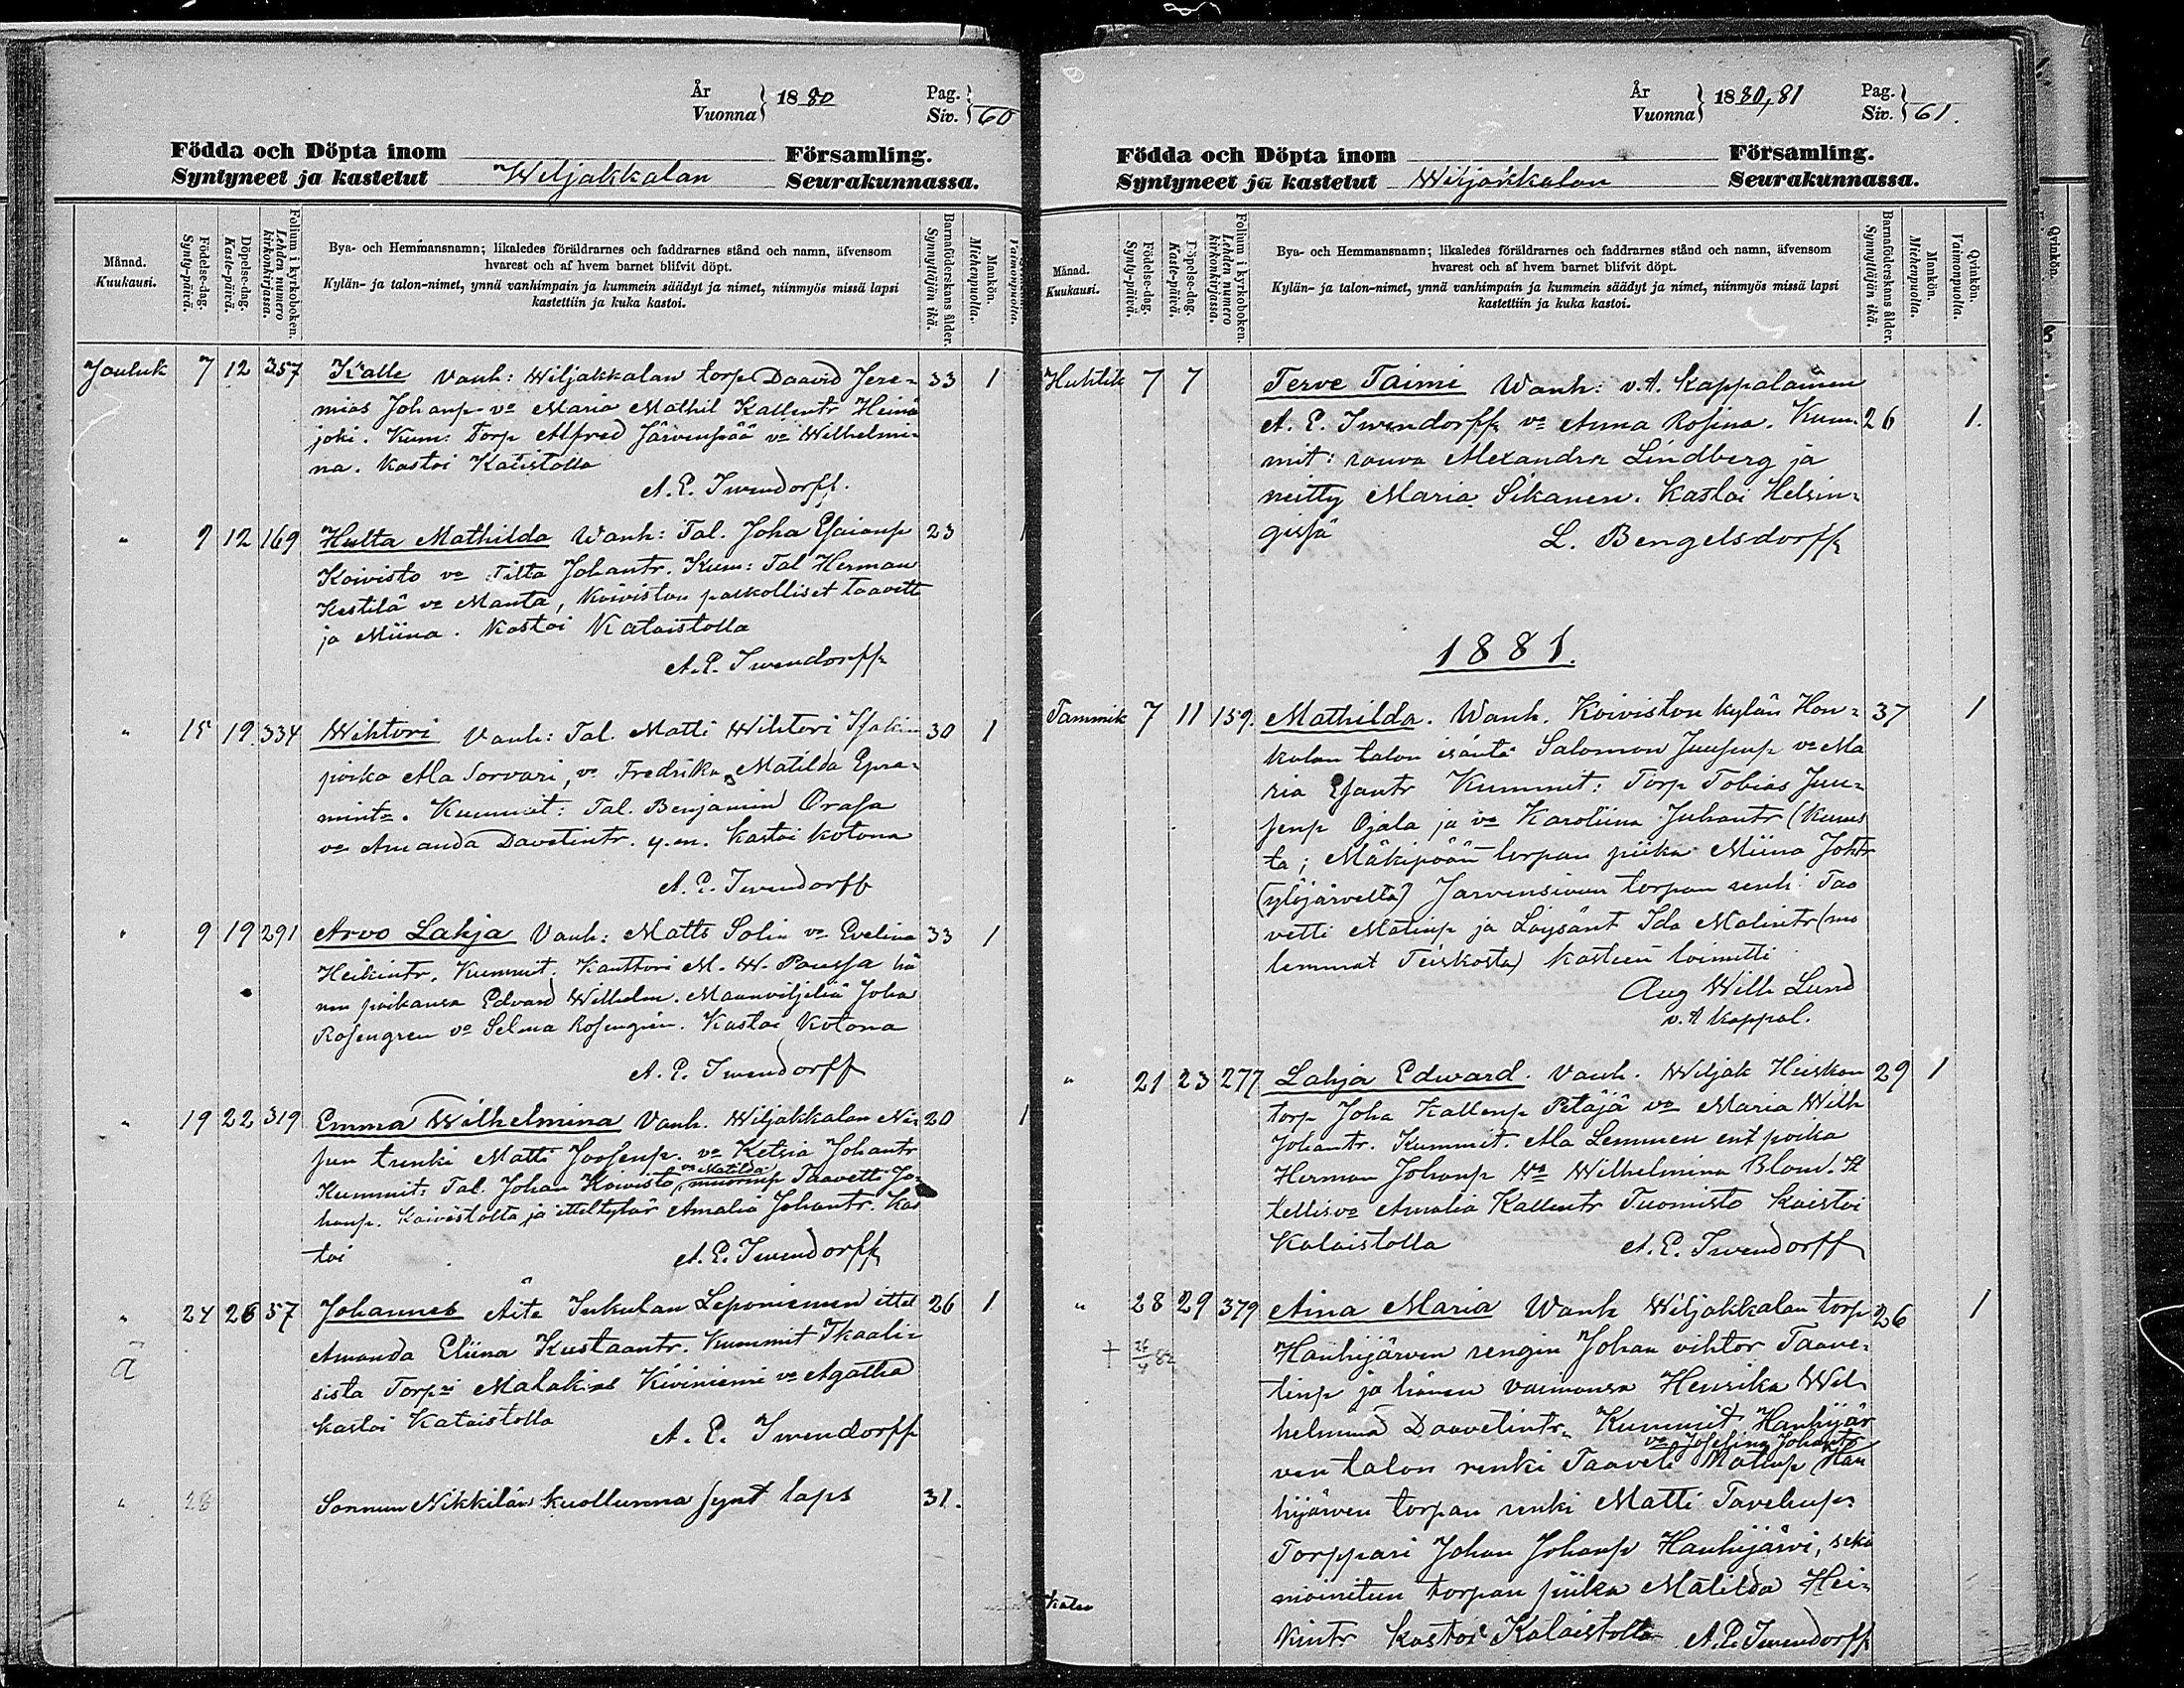 År
Vuonna } 1880
Pag.
Siv. } 60
Födda och Döpta inom Församling.
Syntyneet ja kastetut Wiljakkalan Seurakunnassa.
Månad.
Kuukausi.
Födelse-dag.
Synty-päivä.
Döpelse-dag.
Kaste-päivä.
Folium i kyrkoboken.
Lehden numero
kirkonkirjassa.
Bya- och Hemmansnamn; likaledes föräldrarnes och faddrarnes stånd och namn, äfvensom
hvarest och af hvem barnet blifvit döpt.
Kylän- ja talon-nimet, ynnä vanhimpain ja kummein säädyt ja nimet, niinmyös missä lapsi
kastettiin ja kuka kastoi.
Barnaföderskans ålder.
Synnyttäjän ikä.
Mankön.
Miehenpuolia.
Vaimonpuolia.
Jouluk 7 12 357 Kalle Vanh: Wiljakkalan torp Daavid Jere- 33 1
mias Johanp vo Maria Mathil Kallentr Heinä
joki. Kum: Torp Alfred Järvenpää vo Wilhelmi-
na. Kastoi Kataistolla
A. E. Iwendorff.
" 9 12 169 Hulta Mathilda Wanh: Tal. Joha Esaianp 23 1
Koivisto vo Tilta Johantr. Kum: Tal Herman
Kestilä vo Manta, Koiviston paskolliset Taavetti
ja Miina. Kastoi Kataistolla
A. E. Iwendorff
" 15 19 334 Wihtori Vanh: Tal. Matti Wihtori Isakin 30 1
poika Ala Sorvari, vo Fredrika Matilda Epra-
mintr. Kummit: Tal. Benjamin Orasa
vo Amanda Davetintr. y.m. Kastoi kotona
A. E. Iwendorff
" 9 19 291 Arvo Lahja Vanh: Matts Solin vo Evelina 33 1
Heikintr. Kummit: Kanttori M. W. Paussa hä
nen poikansa Edvard Wilhelm. Maanviljeliä Joha
Rosengren vo Selma Rosengren. Kastoi Kotona
A. E. Iwendorff
" 19 22 319 Emma Wilhelmina Vanh. Wiljakkalan Nii 20 1
sen trenki Matti Joosenp. vo Ketsia Johantr
vo Matilda
Kummit: Tal. Johan Koivisto, Taavetti Jo-
hanp. Koivistolta ja itteltytär Amalia Johantr. Kas
toi A. E. Iwendorff
" 24 26 57 Johannes Äite Inkulan Leponiemen ittel 26 1
Amanda Eliina Kustaantr. Kummit Ikaali-
ä
sista Torpri Malakias Kiviniemi vo Agatha
Kastoi Kataistolla A. E. Iwendorff
" 28 Sonnun Nikkilän kuollunna synt laps 31.
År
Vuonna } 1880,81
Pag.
Siv. } 61.
Födda och Döpta inom Församling.
Syntyneet ja kastetut Wiljakkalan Seurakunnassa.
Månad.
Kuukausi.
Födelse-dag.
Synty-päivä.
Döpelse-dag.
Kaste-päivä.
Folium i kyrkoboken.
Lehden numero
kirkonkirjassa.
Bya- och Hemmansnamn; likaledes föräldrarnes och faddrarnes stånd och namn, äfvensom
hvarest och af hvem barnet blifvit döpt.
Kylän- ja talon-nimet, ynnä vanhimpain ja kummein säädyt ja nimet, niinmyös missä lapsi
kastettiin ja kuka kastoi.
Barnaföderskans ålder.
Synnyttäjän ikä.
Mankön.
Miehenpuolia.
Qvinkön.
Vaimonpuolia.
Huhtik 7 7 Terve Taimi Wanh: v.t. kappalainen
A. E. Iwendorff vo Anna Rosina. Kum- 26 1.
mit: rouva Alexandra Lindberg ja
neitty Maria Sikanen. Kastoi Helsin-
gissä L. Bengelsdorff
1881.
Tammik 7 11 159. Mathilda. Wanh. Koiviston kylän Hon- 37 1
kolan talon isäntä Salomon Juusenp vo Ma
ria Esantr Kummit: Torp Tobias Juu-
senp Ojala ja vo Karoliina Juhantr (Kurus
ta; Mäkipään torpan piika Miina Johtr
(ylöjärveltä) Jarvensivun torpan renki Taa
vetti Matinp ja Löysänt Ida Malintr (mo
lemmat Teiskosta) Kasteen toimitti
Aug Wilh Lund
v.t kappal.
" 21 23 277 Lahja Edward. Vanh. Wiljak Heiskan 29 1
torp Joha Kallenp Petäjä vo Maria Wilh
Johantr. Kummit. Ala Lemmen ent poika
Herman Johanp Vo Wilhelmina Blom. It
tellisvo Amalia Kallentr Tuomisto Kastoi
Kataistolla A. E. Iwendorff
" 28 29 379 Aina Maria Wanh Wiljakkalan torp 26 1
Hanhijärven rengin Johan vihtor Taave-
tinp ja hänen vaimonsa Henrika Wil
helmina Daavetintr. Kummit Hanhijär
vo Josefina Johantr
ven talon renki Taaveti Matinp Han
hijärven torpan renki Matti Tavetinp
Torppari Johan Johanp Hanhijärvi, sekä
mainitun torpan piika Matilda Hei-
kintr Kastoi Kataistolla A. E. Iwendorff